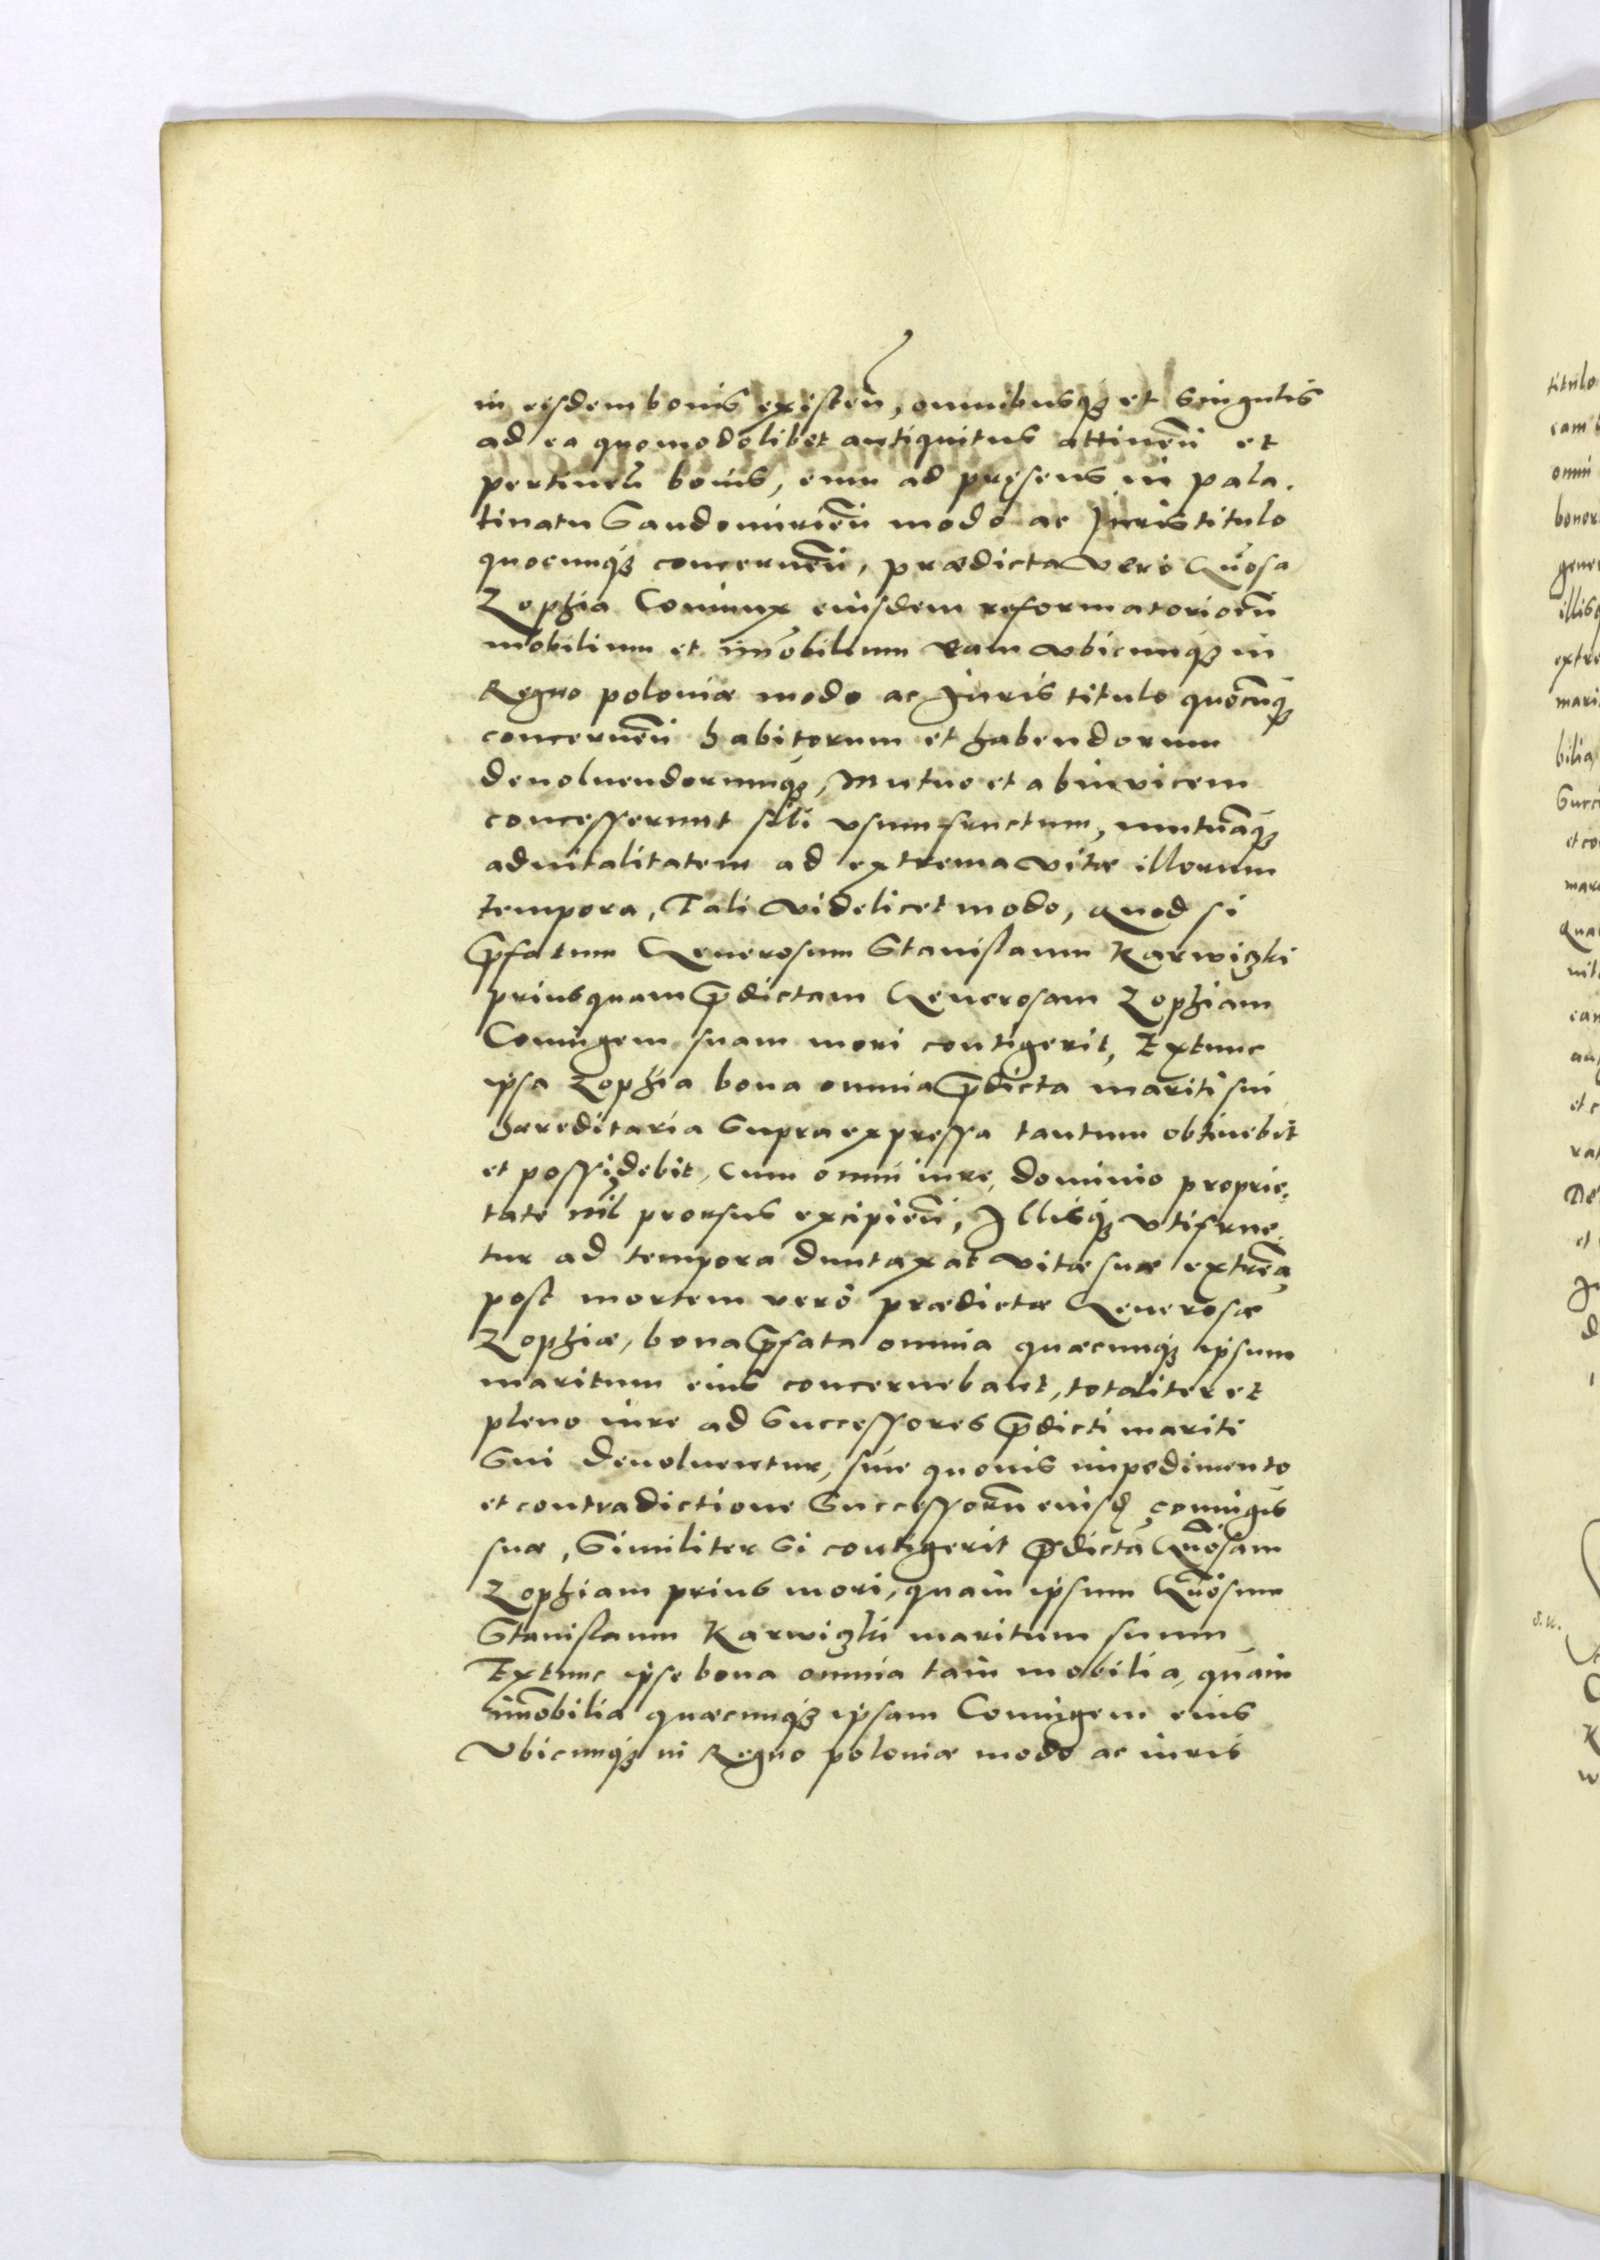 in eisdem bonis existeñ, omnibusq₃ et Singulis
ad ea quomodolibet antiquitus attineñ et
pertineñ bonis, eum ad presens in pala-
tinatu Sandomirieñ modo ac Juris titulo
quocunq₃ concerneñ, prædicta vero Gn̄osa
Zophia Coniunx eiusdem reformatorioru̅
mobilium et im̅obilium eam vbicunq₃ in
Regno poloniæ modo ac Juris titulo quocu̅q₃
concerneñ habitorum et habendorum
deuoluendorumq₃, Mutuo et abinuicem
concesserunt sibi vsumfructum, mutua̅q₃
aduitalitatem ad extrema vitæ illorum
tempora, Tali videlicet modo, quod si
p̅fatum Generosum Stanislaum Karwiczki
priusquam p̅dictam Generosam Zophiam
Coniugem suam mori contigerit, Extunc
ipsa Zophia bona omnia p̅dicta mariti sui
hæreditaria Supraexpressa tantum obtinebit
et possidebit, Cum omni iure, dominio proprie-
tate nil prorsus excipieñ, Illisq₃ vtifrue-
tur ad tempora duntaxat vitæ suæ extre̅a
post mortem vero prædictæ Generosæ
Zophiæ, bona p̅fata omnia quæcunq₃ ipsum
maritum eius concernebant, totaliter et
pleno iure ad Successores p̅dicti mariti
Sui deuoluentur, sine quouis impedimento
et contradictione Successoru̅ eiusd̅ coniugis
suæ, Similiter Si contigerit p̅dicta̅ Gn̄osam
Zophiam prius mori, quam ipsum Gn̄osum
Stanislaum Karwiczki maritum suum
Extunc ipse bona omnia tam mobilia, quam
im̅obilia quæcunq₃ ipsam Coniugem eius
Vbicunq₃ in Regno poloniæ modo ac iuris
titulo
omni
illis
bilia,
et co